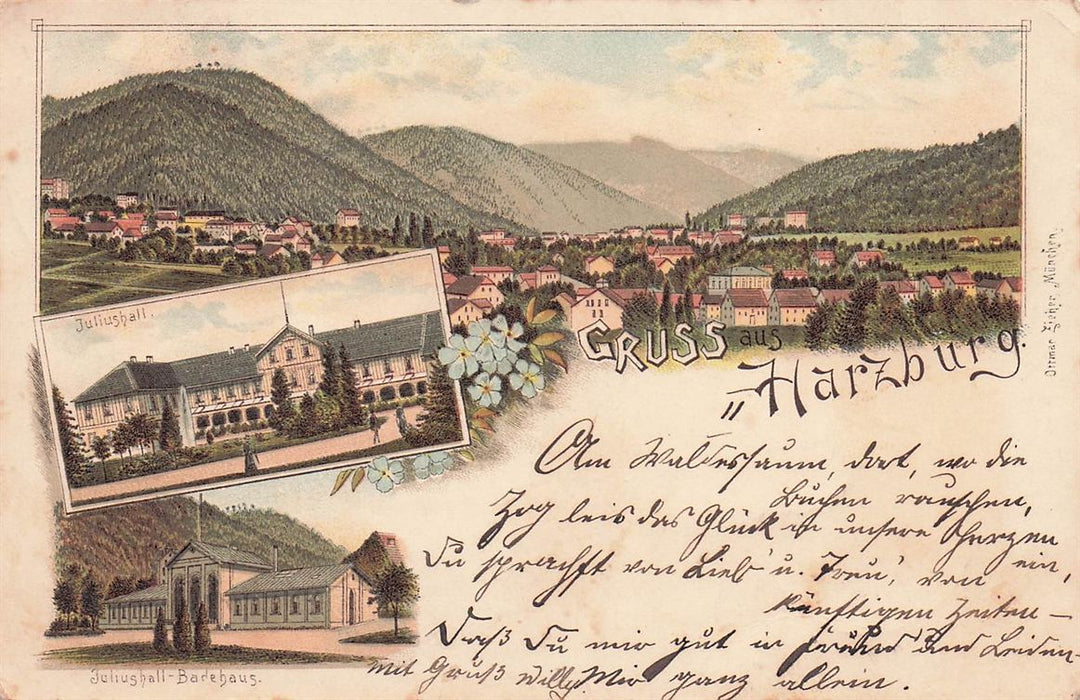 Juliushall.
GRUSS aus
„Harzburg.
Ottmar Zieher, München.
Am Waldessaum, dort, wo die
Buchen rauschen,
Zog leis das Glück in unsere Herzen
ein,
Du sprachst von Lieb' u. Treu', von
künftigen Zeiten –
Daß Du mir gut in Freud' und Leiden-
Mir ganz allein.
mit Gruß Willy
Juliushall-Badehaus.